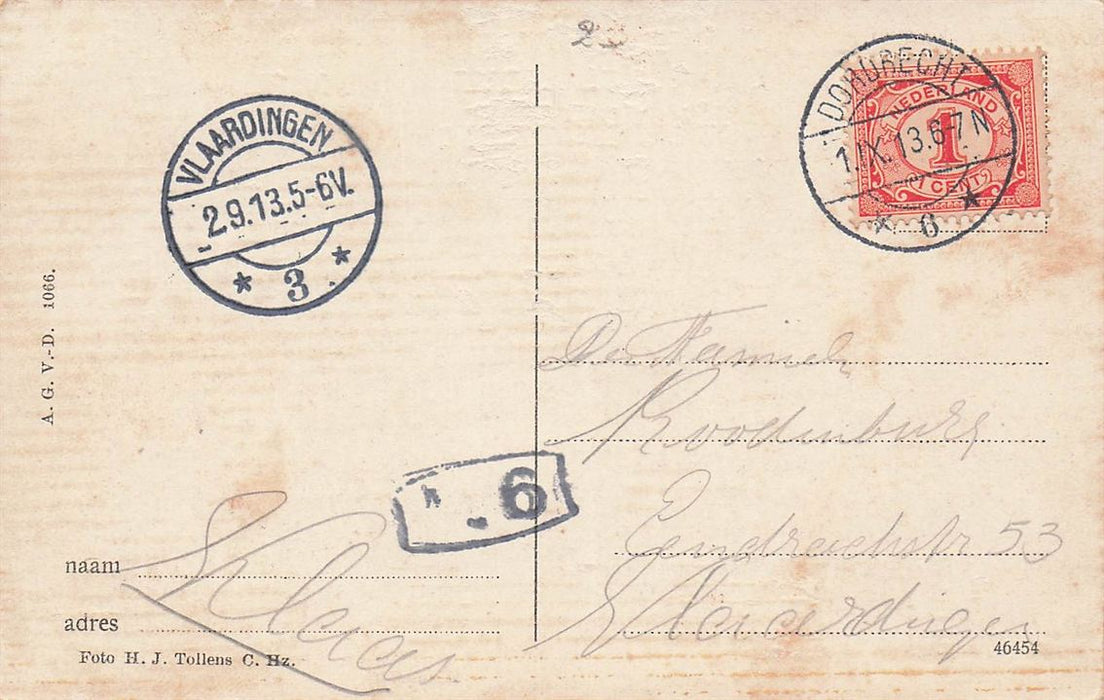 DORDRECHT
1.IX.13.6-7N
* 6 *
NEDERLAND
1
1 CENT
VLAARDINGEN
2.9.13.5-6V.
* 3 *
A. G. V.-D. 1066.
De
Roodenburg
53
Vlaardingen
6
naam Klaas
adres
Foto H. J. Tollens C. Hz.
46454